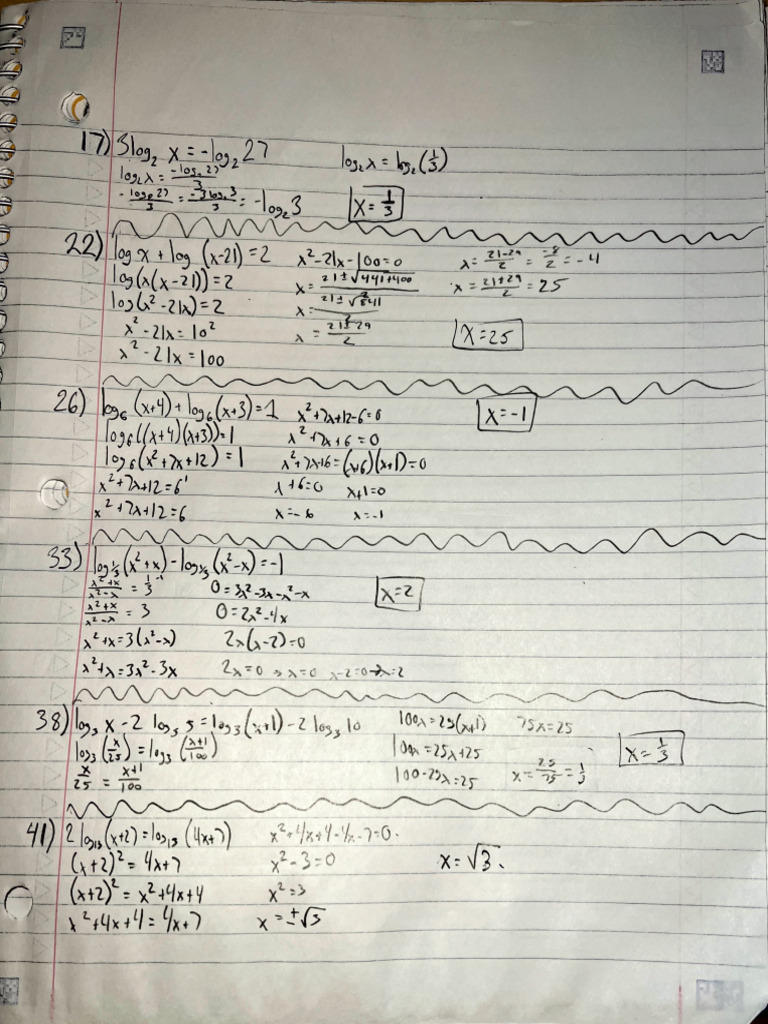 17) 3log₂ x = -log₂ 27
log₂x = -log₂27/3
-log₂27/3 = -3log₂3/3 = -log₂3
log₂x = log₂(1/3)
x = 1/3
22) log x + log (x-21) = 2
log(x(x-21)) = 2
log(x² -21x) = 2
x² -21x = 10²
x² -21x = 100
x² -21x -100 = 0
x = 21±√441+400/2
x = 21±√841/2
x = 21±29/2
x = 21-29/2 = -8/2 = -4
x = 21+29/2 = 25
x = 25
26) log₆ (x+4) + log₆ (x+3) = 1
log₆((x+4)(x+3)) = 1
log₆(x²+7x+12) = 1
x²+7x+12 = 6¹
x²+7x+12 = 6
x²+7x+12-6=0
x²+7x+6 = 0
x²+7x+6 = (x+6)(x+1) = 0
x+6=0 x+1=0
x=-6 x=-1
x = -1
33) log 1/3 (x²+x) - log 1/3 (x²-x) = -1
x²+x/x²-x = 1/3⁻¹
x²+x/x²-x = 3
x²+x = 3(x²-x)
x²+x = 3x²-3x
0 = 3x²-3x-x²-x
0 = 2x²-4x
2x(x-2)=0
2x=0 → x=0 x-2=0 → x=2
x = 2
38) log₃ x - 2 log₃ 5 = log₃(x+1) - 2 log₃ 10
log₃(x/25) = log₃(x+1/100)
x/25 = x+1/100
100x = 25(x+1)
100x = 25x+25
100-25x = 25
75x = 25
x = 25/75 = 1/3
x = 1/3
41) 2 log₁₃(x+2) = log₁₃ (4x+7)
(x+2)² = 4x+7
(x+2)² = x²+4x+4
x²+4x+4 = 4x+7
x²+4x+4-4x-7=0.
x²-3=0
x²=3
x = ±√3
x = √3.